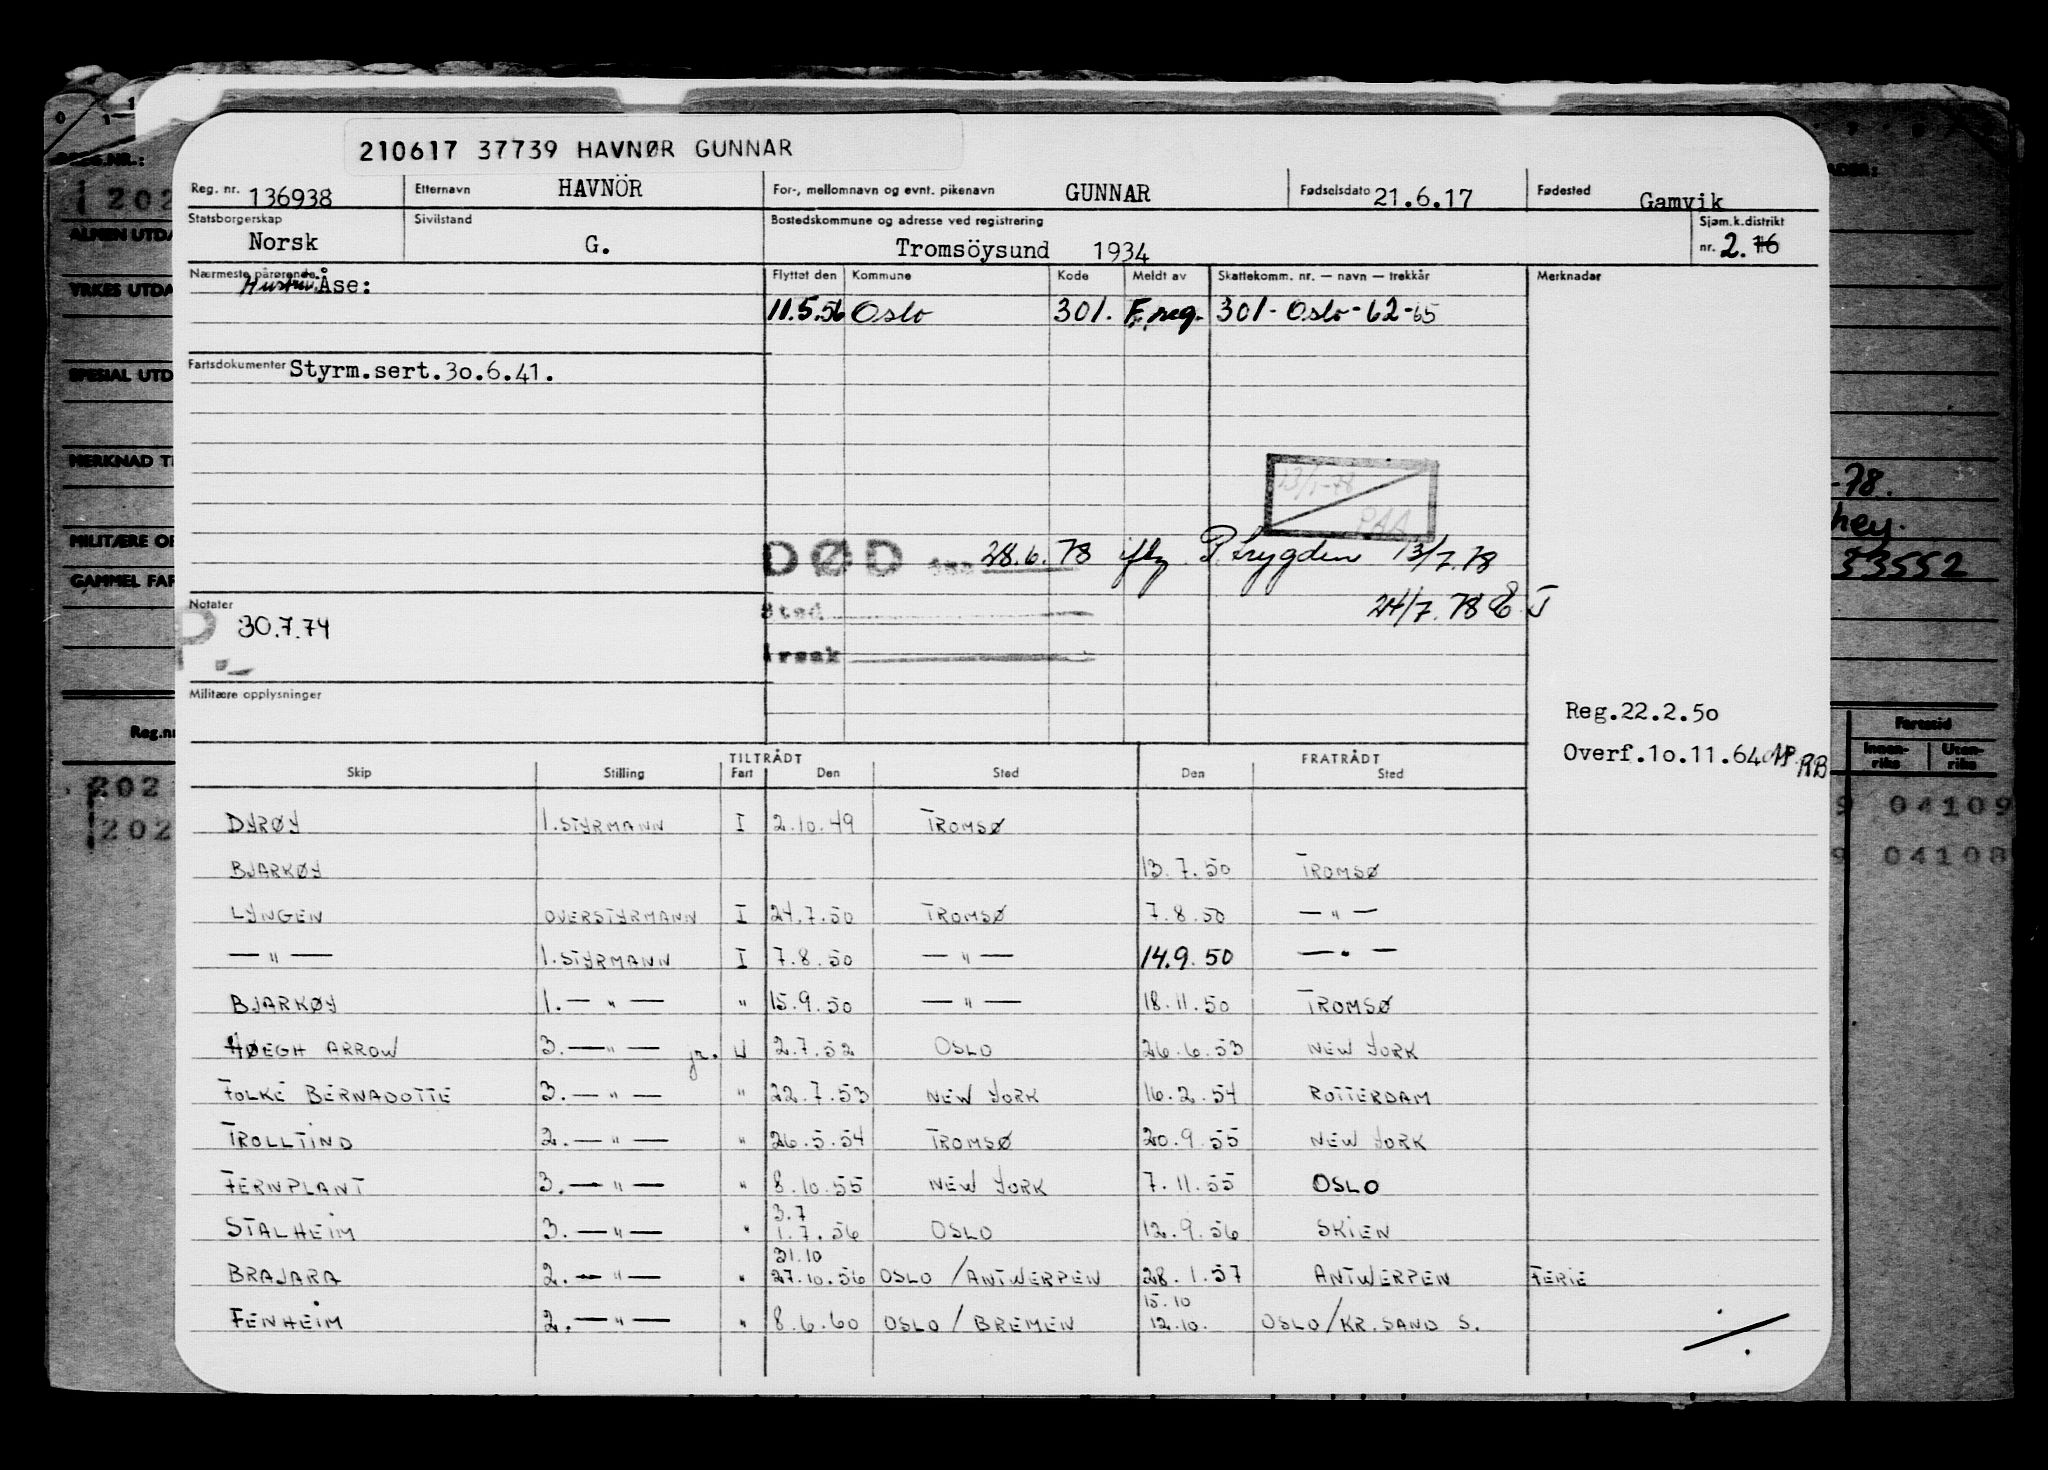 210617 37739 HAVNØR GUNNAR
Reg. nr. 136938 Etternavn HAVNÖR For-, mellomnavn og evnt. pikenavn GUNNAR Fødselsdato 21.6.17 Fødested Gamvik
Statsborgerskap Norsk Sivilstand G. Bostedskommune og adresse ved registrering Tromsöysund 1934 Sjøm.k.distrikt nr. 2. 16
Nærmeste pårørende Hustru: Åse: Flyttet den Kommune Kode Meldt av Skattekomm. nr. — navn — trekkår Merknader
11.5.56 Oslo 301. F.reg. 301- Oslo-62-65
Fartsdokumenter Styrm.sert.3o.6.41.
13/7-78
PAA
DØD den 28.6.78 iflg. P.trygden 13/7.78
Sted 24/7.78
Årsak
Notater
30.7.74
Militære opplysninger
Reg.22.2.5o
Overf.1o.11.64 RB
TILTRÅDT FRATRÅDT
Skip Stilling Fart Den Sted Den Sted
DYRØY 1.STYRMANN I 2.10.49 TROMSØ
BJARKØY 13.7.50 TROMSØ
LYNGEN OVERSTYRMANN I 24.7.50 TROMSØ 7.8.50 — " —
— " — 1.STYRMANN I 7.8.50 — " — 14.9.50 — " —
BJARKØY 1. — " — " 15.9.50 — " — 18.11.50 TROMSØ
HØEGH ARROW 3. — " — jr. U 2.7.52 OSLO 26.6.53 NEW YORK
FOLKE BERNADOTTE 3. — " — " 22.7.53 NEW YORK 16.2.54 ROTTERDAM
TROLLTIND 2. — " — " 26.5.54 TROMSØ 20.9.55 NEW YORK
FERNPLANT 3. — " — " 8.10.55 NEW YORK 7.11.55 OSLO
3.7
STALHEIM 3. — " — " 1.7.56 OSLO 12.9.56 SKIEN
31.10
BRAJARA 2. — " — " 27.10.56 OSLO / ANTWERPEN 28.1.57 ANTWERPEN FERIE
15.10
FENHEIM 2. — " — " 8.6.60 OSLO / BREMEN 12.10. OSLO / KR.SAND S.
./.
REG.NR.:
202
ALMEN UTDA
YRKES UTDA
SPESIAL UTD
MERKNAD T
MILITÆRE OP
GAMMEL FAR
Reg.nr
202
202
-78.
33552
Fartstid
Innen-riks Uten-riks
9 04109
9 04108